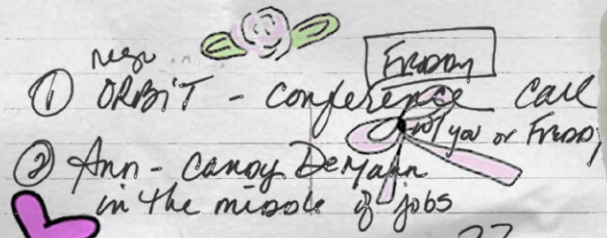 FRIDAY
① ORBIT - conference call
w/ you or FREDDY
② Ann - Candy DeMann
in the middle of jobs